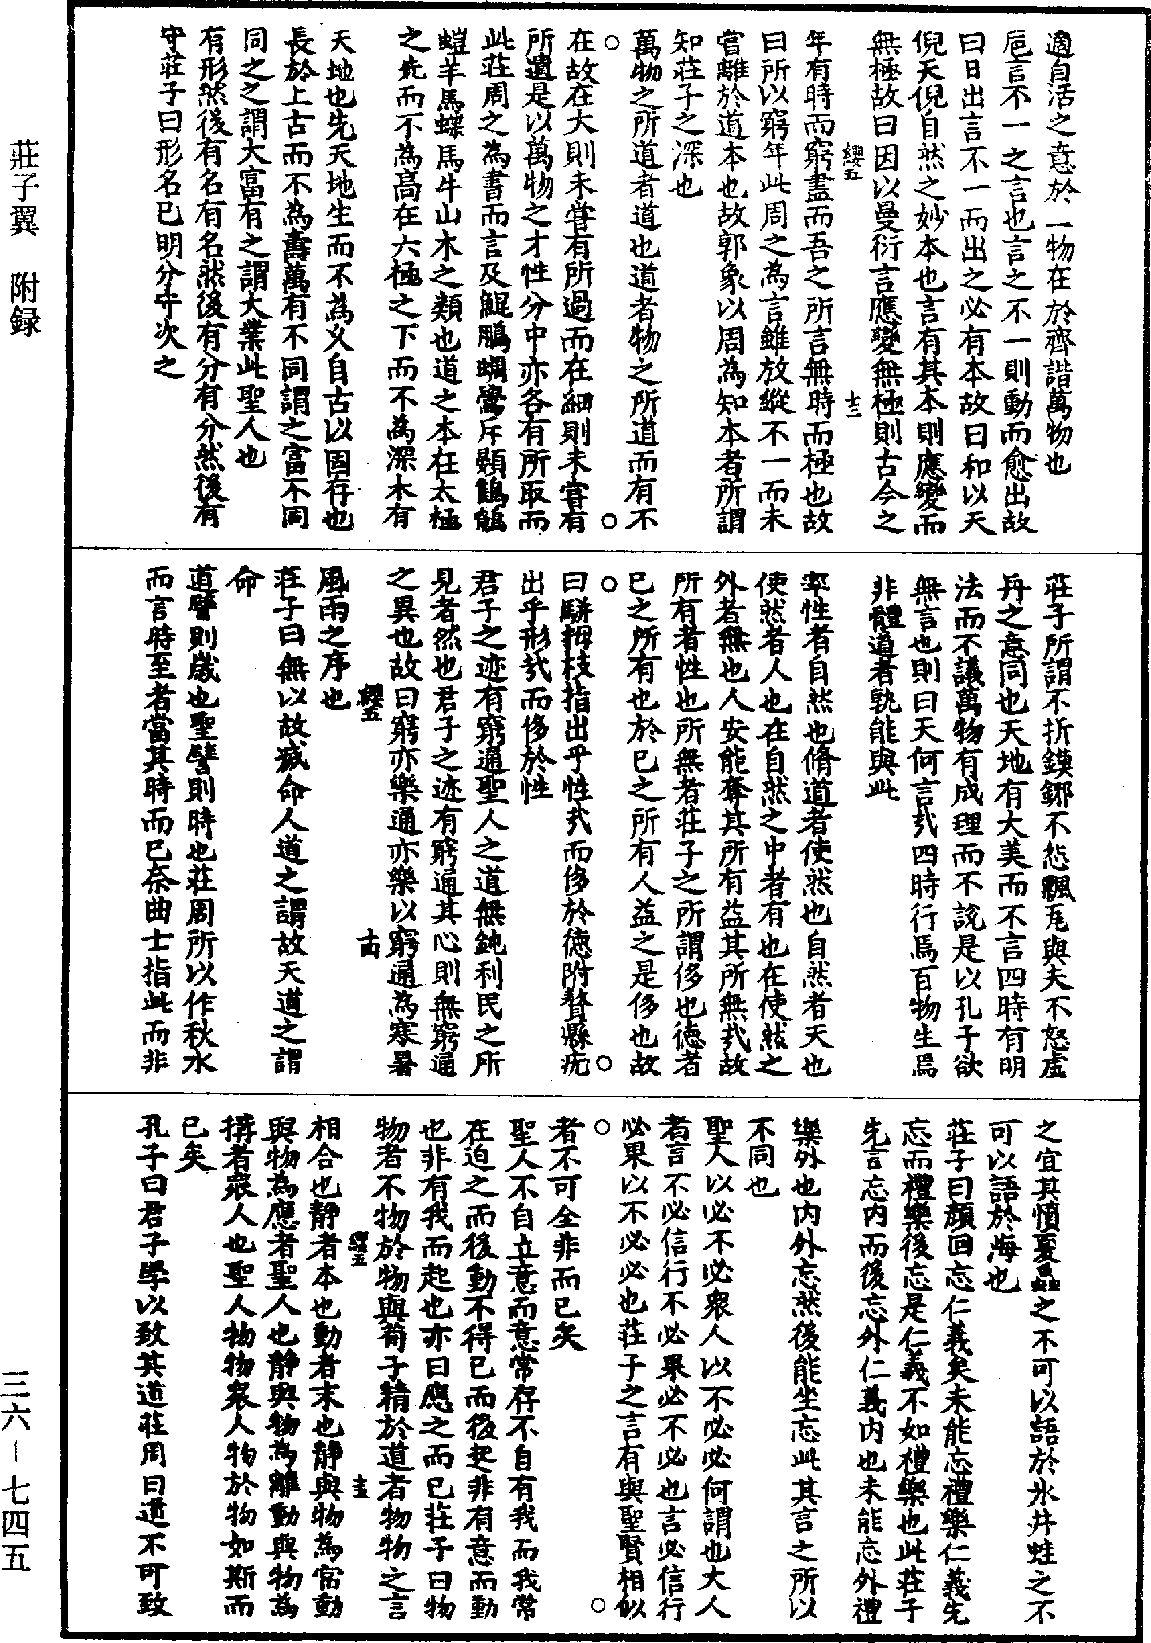 適自活之意於一物在於齊諧萬物也
巵言不一之言也言之不一則動而愈出故
曰日出言不一而出之必有本故曰和以天
倪天倪自然之妙本也言有其本則應變而
無極故曰因以曼衍言應變無極則古今之
纓五
十三
年有時而窮盡而吾之所言無時而極也故
曰所以窮年此周之為言雖放縱不一而未
嘗離於道本也故郭象以周為知本者所謂
知莊子之深也
萬物之所道者道也道者物之所道而有不
在故在大則未嘗有所過而在細則未嘗有
所遺是以萬物之才性分中亦各有所取而
此莊周之為書而言及鯤鵬蜩鷽斥鷃鵷鶵
螘羊馬蝶馬牛山木之類也道之本在太極
之先而不為高在六極之下而不為深木有
天地也先天地生而不為乆自古以固存也
長於上古而不為壽萬有不同謂之富不同
同之之謂大富有之謂大業此聖人也
有形然後有名有名然後有分有分然後有
守莊子曰形名已明分守次之
莊子所謂不折鏌鋣不怨飄瓦與夫不怒虛
舟之意同也天地有大美而不言四時有明
法而不議萬物有成理而不說是以孔子欲
無言也則曰天何言哉四時行焉百物生焉
非體道者孰能與此
率性者自然也脩道者使然也自然者天也
使然者人也在自然之中者有也在使然之
外者無也人安能奪其所有益其所無哉故
所有者性也所無者莊子之所謂侈也德者
已之所有也於已之所有人益之是侈也故
曰駢拇枝指出乎性哉而侈於德附贅縣疣
出乎形哉而侈於性
君子之迹有窮通聖人之道無鈍利民之所
見者然也君子之迹有窮通其心則無窮通
之異也故曰窮亦樂通亦樂以窮通為寒暑
纓五
十四
風雨之序也
莊子曰無以故滅命人道之謂故天道之謂
命
道譬則歲也聖譬則時也莊周所以作秋水
而言時至者當其時而已奈曲士指此而非
之宜其憤夏蟲之不可以語於氷井蛙之不
可以語於海也
莊子曰顏回忘仁義矣未能忘禮樂仁義先
忘而禮樂後忘是仁義不如禮樂也此莊子
先言忘内而後忘外仁義内也未能忘外禮
樂外也内外忘然後能坐忘此其言之所以
不同也
聖人以必不必衆人以不必必何謂也大人
者言不必信行不必果必不必也言必信行
必果以不必必也莊子之言有與聖賢相似
者不可全非而已矣
聖人不自立意而意常存不自有我而我常
在迫之而後動不得已而後起非有意而動
也非有我而起也亦曰應之而已莊子曰物
物者不物於物與荀子精於道者物物之言
纓五
十五
相合也靜者本也動者末也靜與物為常動
與物為應者聖人也靜與物為離動與物為
搆者衆人也聖人物物衆人物於物如斯而
已矣
孔子曰君子學以致其道莊周曰道不可致
莊子翼　附録
三六－七四五